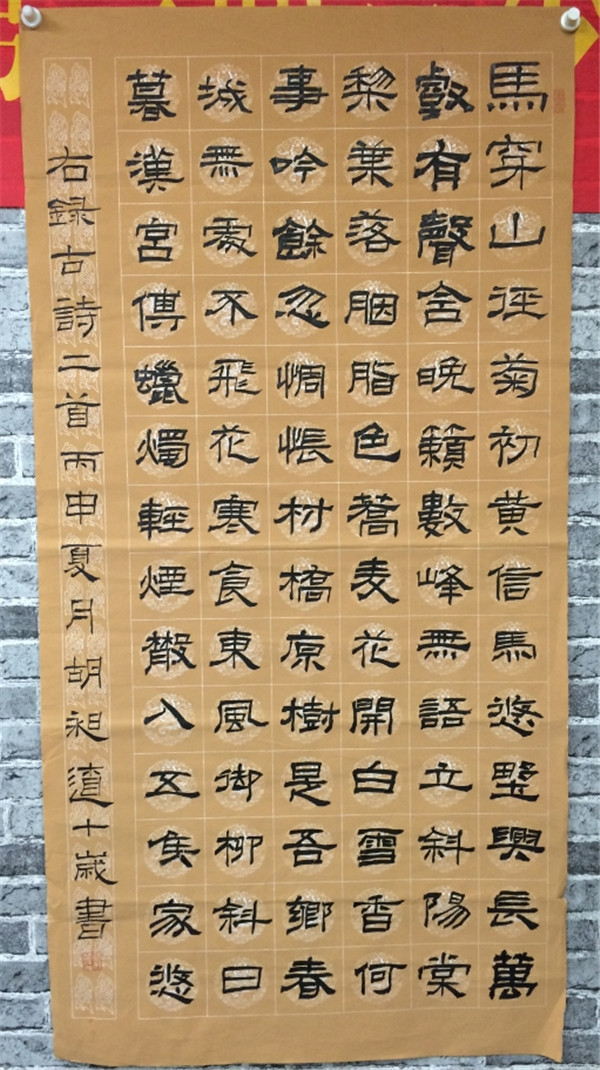 馬穿山徑菊初黄信馬悠墅興長萬
壑有聲含晚籟數峰無語立斜陽棠
棃葉落胭脂色蕎麦花開白雪香何
事吟餘忽惆悵村橋原樹是吾鄉春
城無處不飛花寒食東風御柳斜日
暮漢宮傳蠟燭輕煙散入五侯家悠
右録古詩二首丙申夏月胡昶十歲書